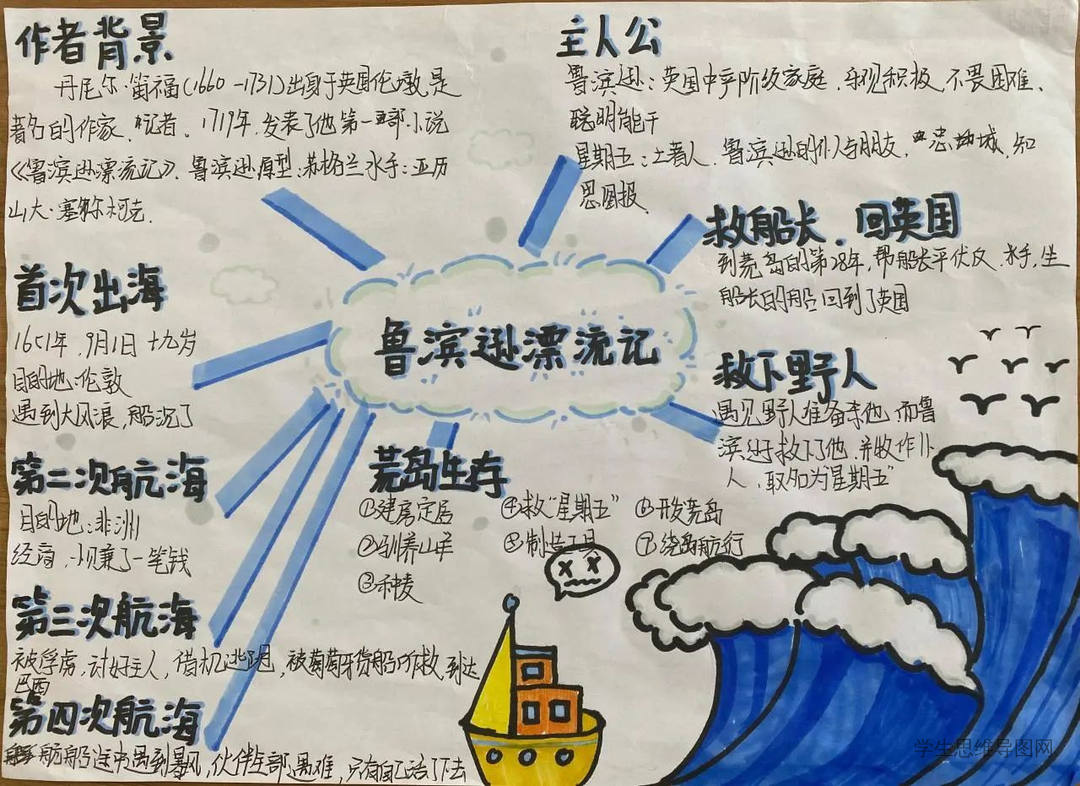 作者背景
丹尼尔·笛福(1660-1731)出身于英国伦敦,是
著名的作家、记者、1719年,发表了他第一部小说
《鲁滨逊漂流记》、鲁滨逊原型:苏格兰水手:亚历
山大·塞尔柯克.
首次出海
1651年,9月1日 十九岁
目的地:伦敦
遇到大风浪,船沉了
第二次航海
目的地:非洲
经商,小赚了一笔钱
第三次航海
被俘虏,讨好主人,借机逃跑,被葡萄牙货船所救,到达
巴西
第四次航海
船途中遇到暴风,伙伴全部遇难,只有自己活了下去
鲁滨逊漂流记
主人公
鲁滨逊:英国中产阶级家庭、乐观积极、不畏困难、
聪明能干
星期五:土著人、鲁滨逊的仆人与朋友,忠诚、知
恩图报、
救船长、回英国
到荒岛的第28年,帮船长平伏反水手,坐
船长的船回到了英国
救下野人
遇见野人准备杀他,而鲁
滨逊救下了他,并收作仆
人,取名为星期五"
荒岛生存
①建房定居
②驯养山羊
③种麦
④救"星期五"
⑤制造工具
⑥开发荒岛
⑦绕岛航行
学生思维导图网